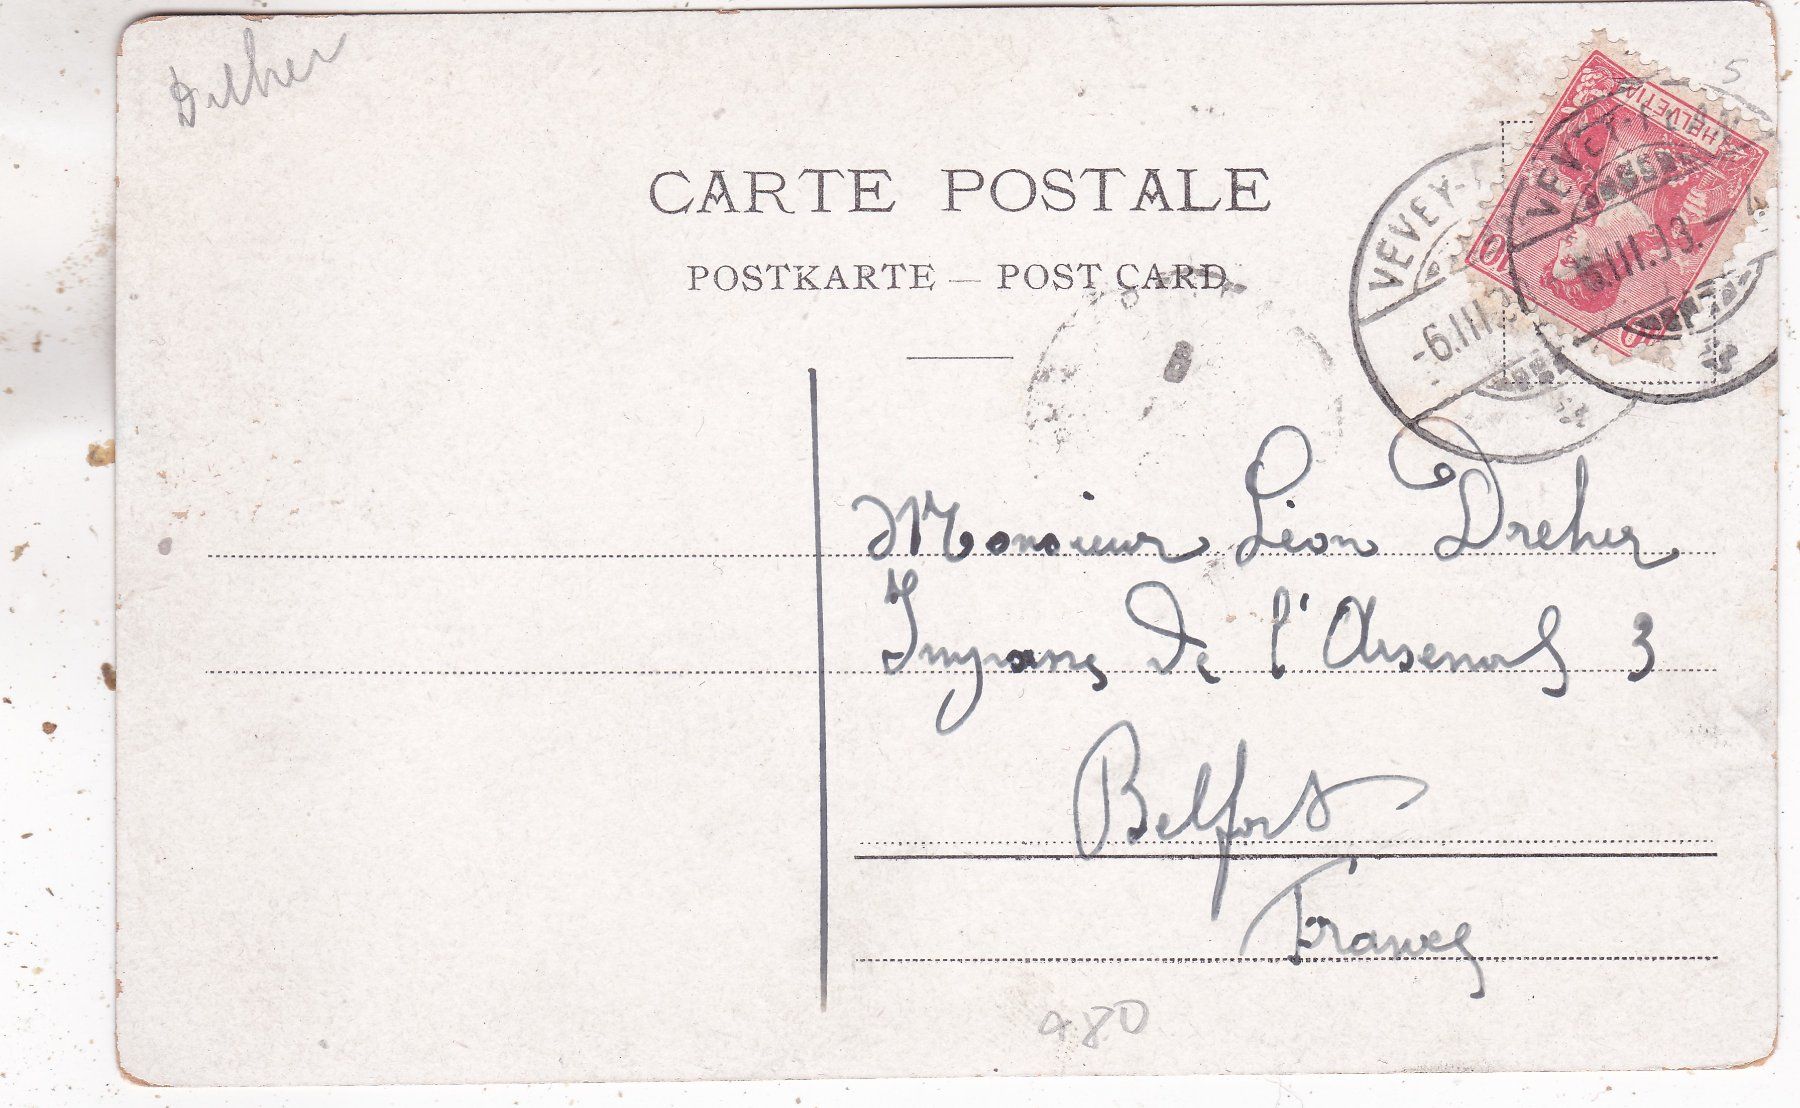 Dreher
5
HELVETIA
10
10
VEVEY
-6.III
VEVEY
6.III.13.
CARTE POSTALE
POSTKARTE — POST CARD
Monsieur Léon Dreher
Impasse de l'Arsenal 3
Belfort
France
980